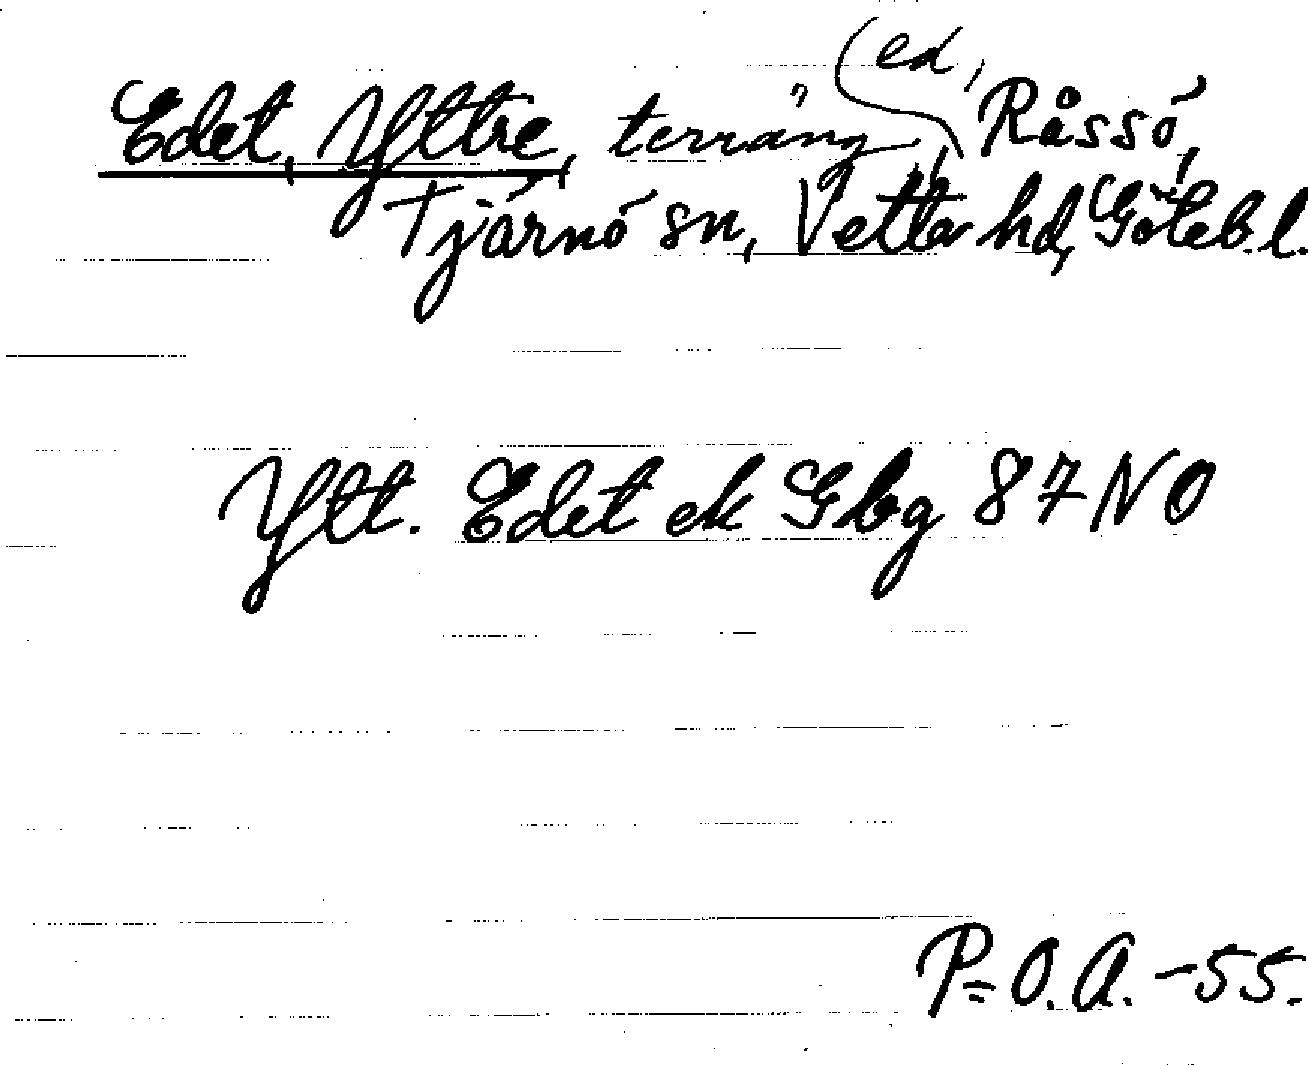 Edet, Yttre, terräng (ed), Råssö,
Tjärnö sn, Vette hd, Göteb. l.
Ytt. Edet ek Gbg 87 NO
P-O.A. -55.